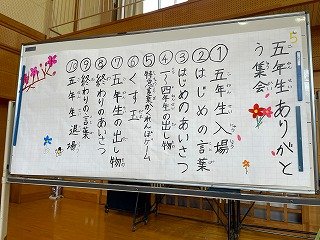 五年生ありがと
う集会
①五年生入場
②はじめの言葉
③はじめのあいさつ
④一〜四年生の出し物
⑤特別言葉かくれんぼゲーム
⑥くす玉
⑦五年生の出し物
⑧終わりのあいさつ
⑨終わりの言葉
⑩五年生退場